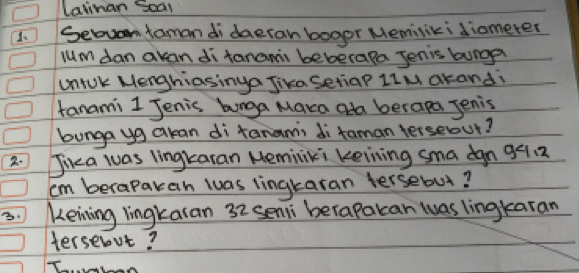 Latihan Soal
1. Sebuah taman di daerah bogor Memiliki diameter
14m dan akan di tanami beberapa Jenis bunga
untuk Menghiasinya Jika Setiap 11M akan di
tanami 1 Jenis bunga Maka ada berapa Jenis
bunga yg akan di tanami di taman tersebut?
2. Jika luas lingkaran Memiliki keliling sma dgn 94.2
cm berapakah luas lingkaran tersebut?
3. Keliling lingkaran 32 senti berapakah luas lingkaran
tersebut?